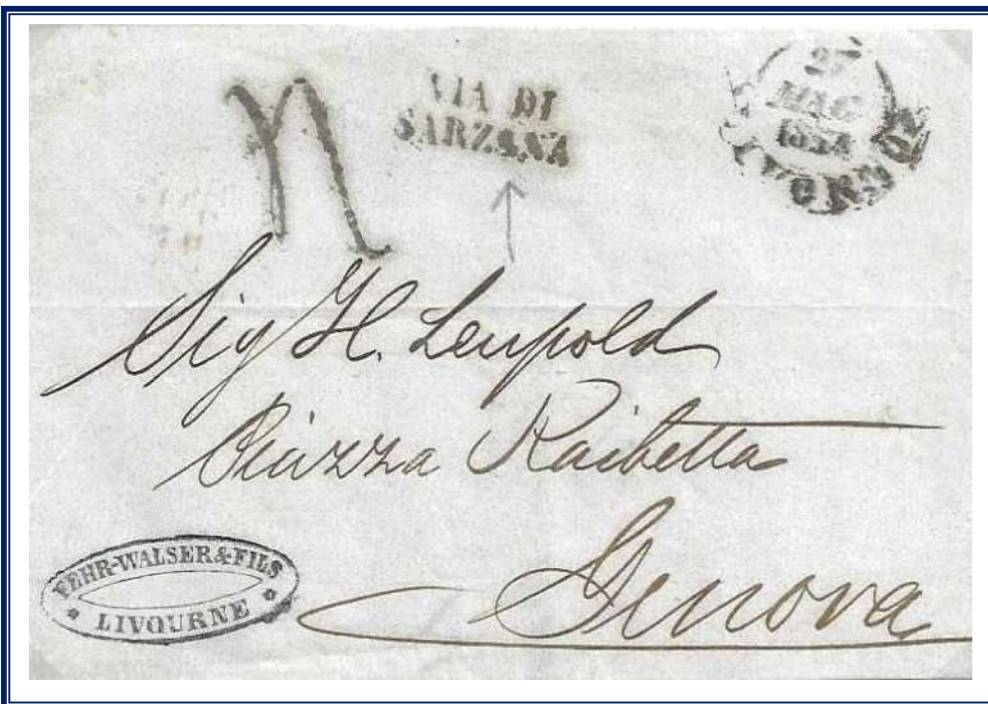 VIA DI
SARZANA
27
MAG
LIVORNO
Sig H. Leupold
Piazza Raibetta
Genova
FEHR-WALSER & FILS
* LIVOURNE *